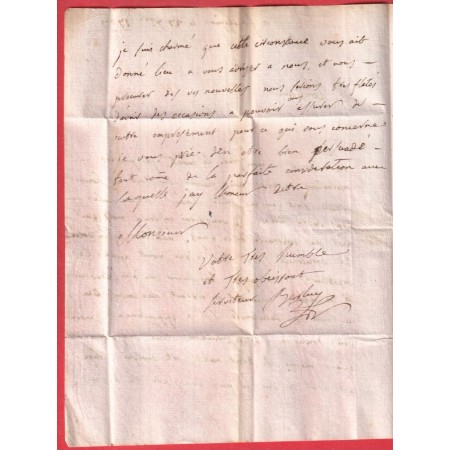 je suis charmé que cette circonstance vous ait
donné lieu a vous écrire a nous, et nous
procurer des vos nouvelles nous serions tres flatés
d'avoir des occasions a pouvoir vous assurer de
notre empressement pour ce qui vous concerne
je vous prie d'en etre bien persuadé
tout come de la parfaite consideration avec
laquelle jay l'honneur d'etre
Monsieur
Votre tres humble
et tres obeissant
serviteur